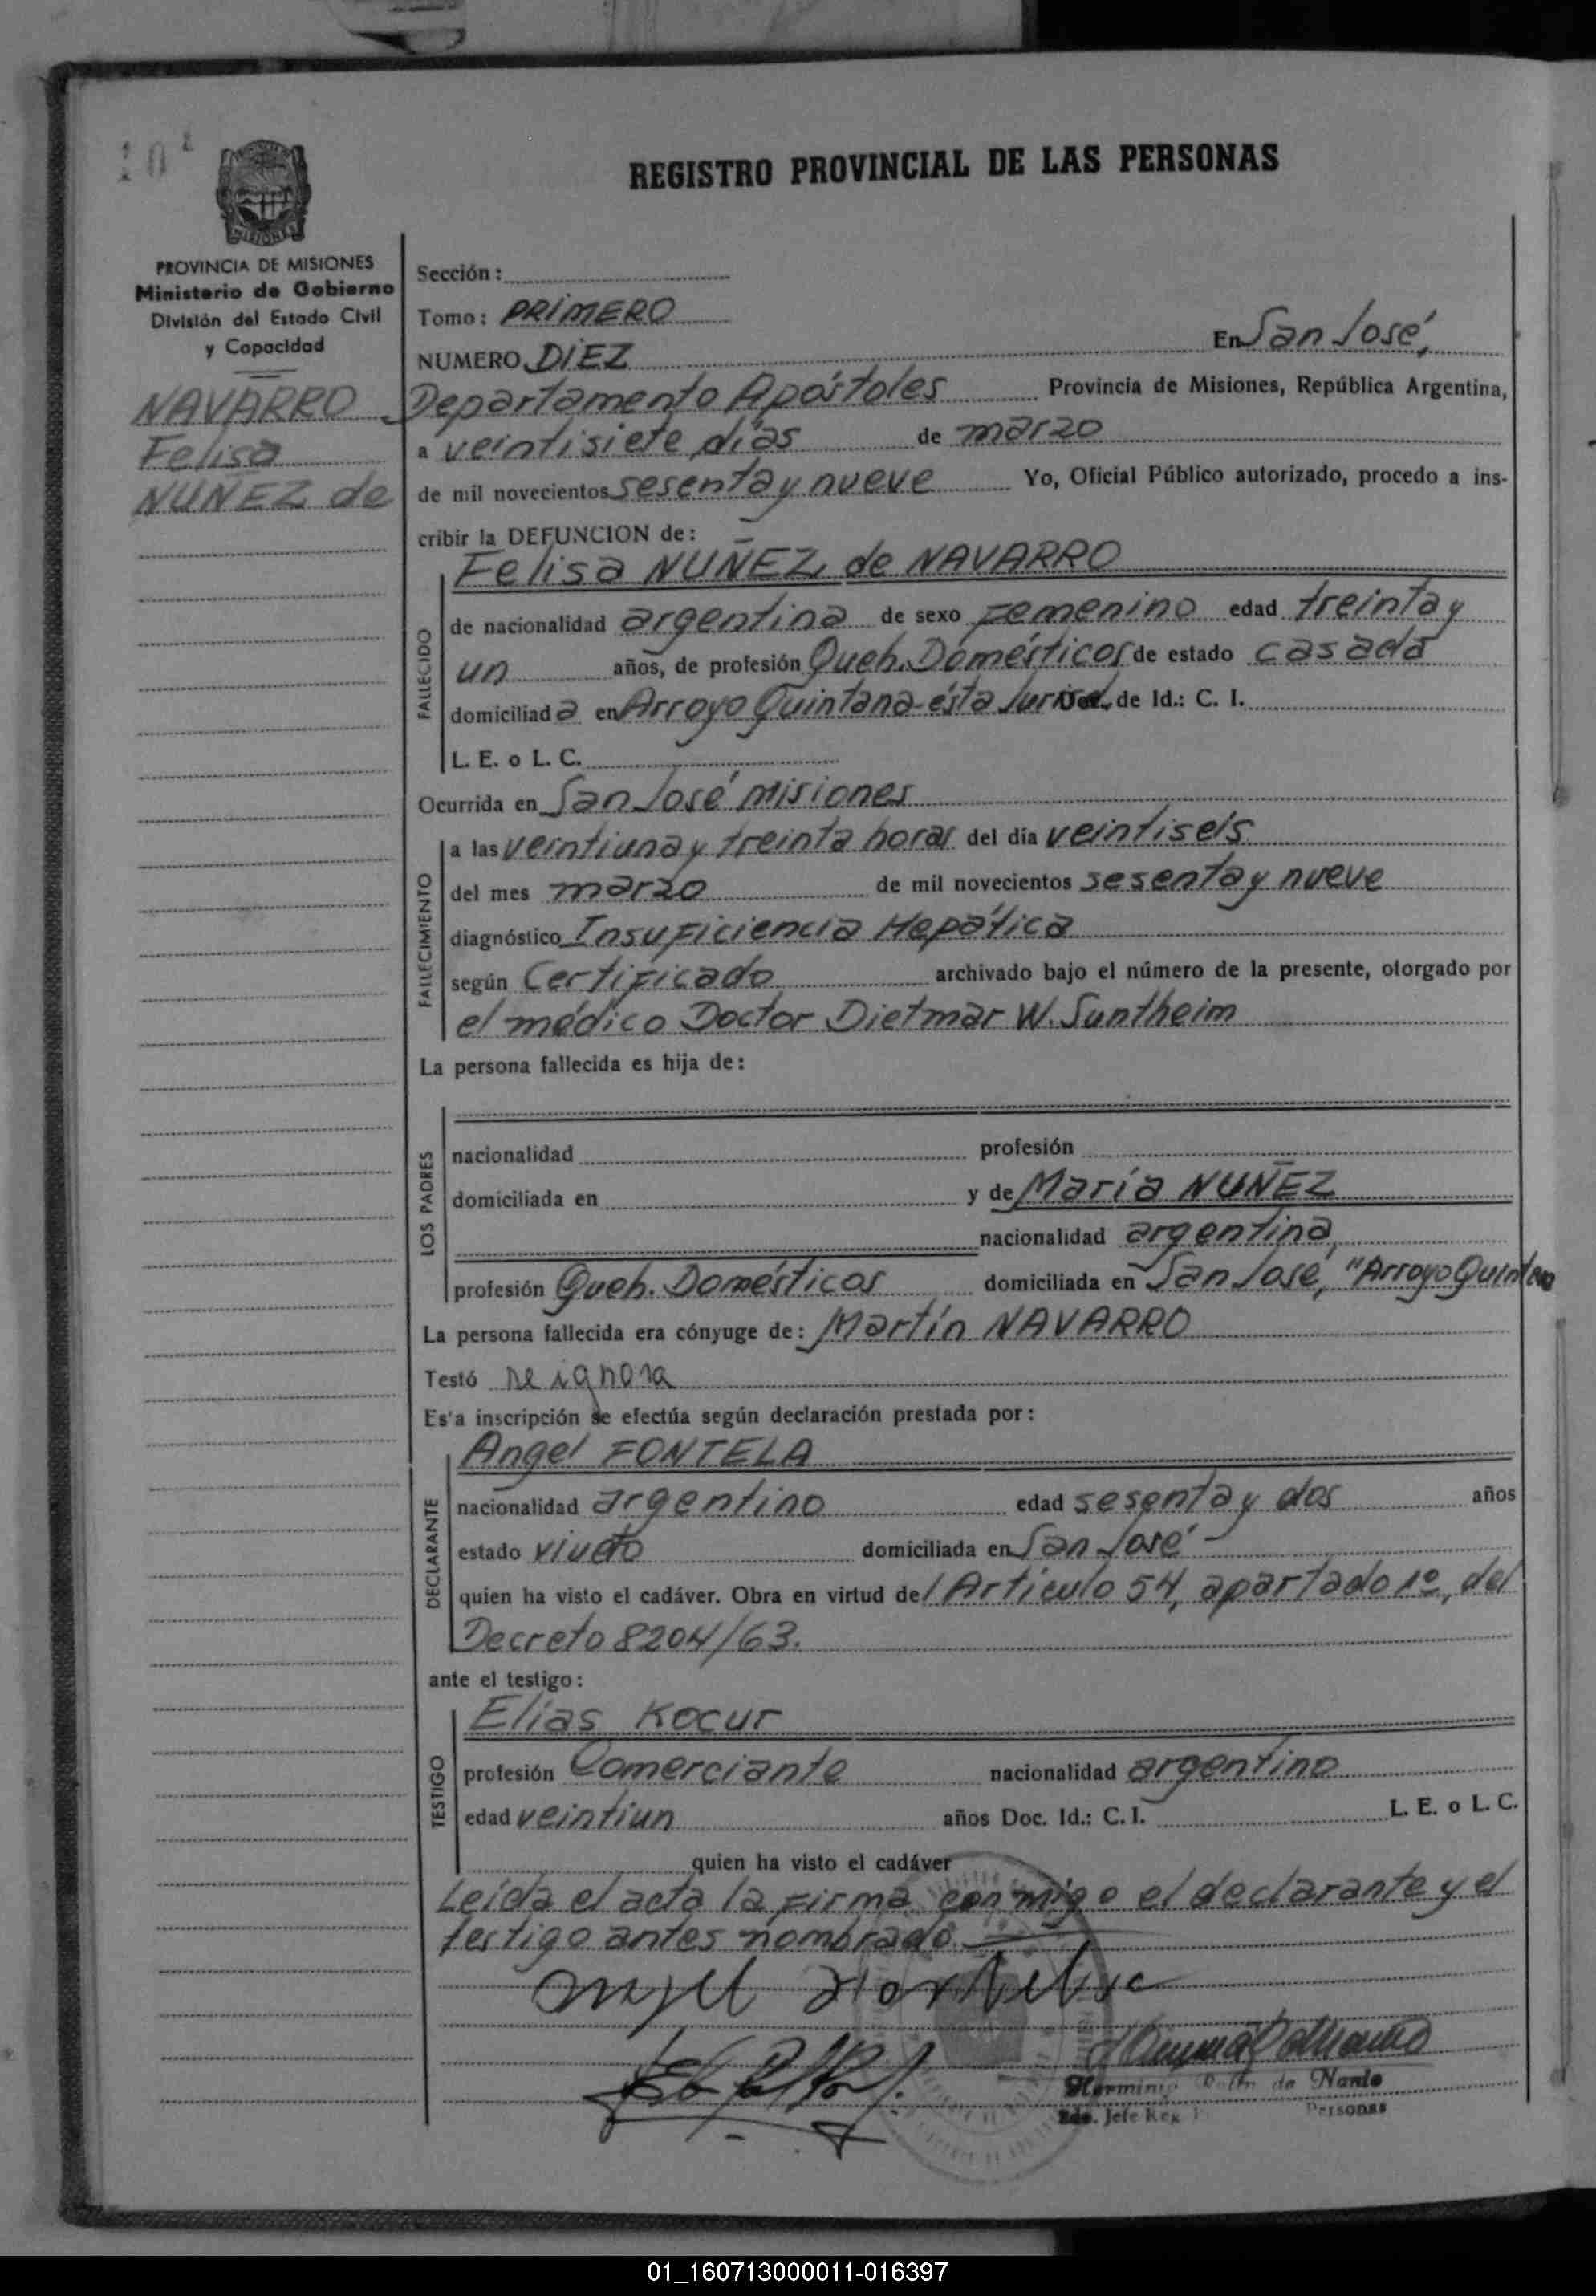 REGISTRO PROVINCIAL DE LAS PERSONAS
MISIONES
PROVINCIA DE MISIONES
Ministerio de Gobierno
División del Estado Civil
y Capacidad
NAVARRO
Felisa
NUÑEZ de
Sección:
Tomo: PRIMERO
NUMERO DIEZ En San José,
Departamento Apóstoles Provincia de Misiones, República Argentina,
a veintisiete días de marzo
de mil novecientos sesenta y nueve Yo, Oficial Público autorizado, procedo a ins-
cribir la DEFUNCION de:
Felisa NUÑEZ de NAVARRO
FALLECIDO
de nacionalidad argentina de sexo Femenino edad treinta y
un años, de profesión Queh. Domésticos de estado casada
domiciliada en Arroyo Quintana-ésta Jurisd. de Id.: C. I.
L. E. o L. C.
Ocurrida en San José Misiones
FALLECIMIENTO
a las veintiuna y treinta horas del día veintiseis
del mes marzo de mil novecientos sesenta y nueve
diagnóstico Insuficiencia Hepática
según Certificado archivado bajo el número de la presente, otorgado por
el médico Doctor Dietmar W. Suntheim
La persona fallecida es hija de:
LOS PADRES
nacionalidad profesión
domiciliada en y de María NUÑEZ
nacionalidad argentina,
profesión Queh. Domésticos domiciliada en San José, "Arroyo Quintana
La persona fallecida era cónyuge de: Martín NAVARRO
Testó se ignora
Es'a inscripción se efectúa según declaración prestada por:
Angel FONTELA
DECLARANTE
nacionalidad argentino edad sesenta y dos años
estado viudo domiciliada en San José-
quien ha visto el cadáver. Obra en virtud del Artículo 54, apartado 1º, del
Decreto 8204/63.
ante el testigo:
Elias Kocur
TESTIGO
profesión Comerciante nacionalidad argentino
edad veintiun años Doc. Id.: C. I. L. E. o L. C.
quien ha visto el cadáver
Leída el acta la firma conmigo el declarante y el
testigo antes nombrado.
Angel Fontela
de Nanlo
Jefe Personas
01_160713000011-016397